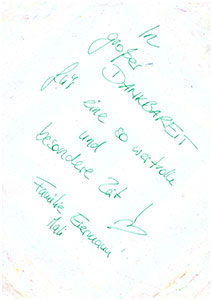 In
großer
DANKBAREIT
für
eine so wertvolle
und
besondere Zeit
Familie